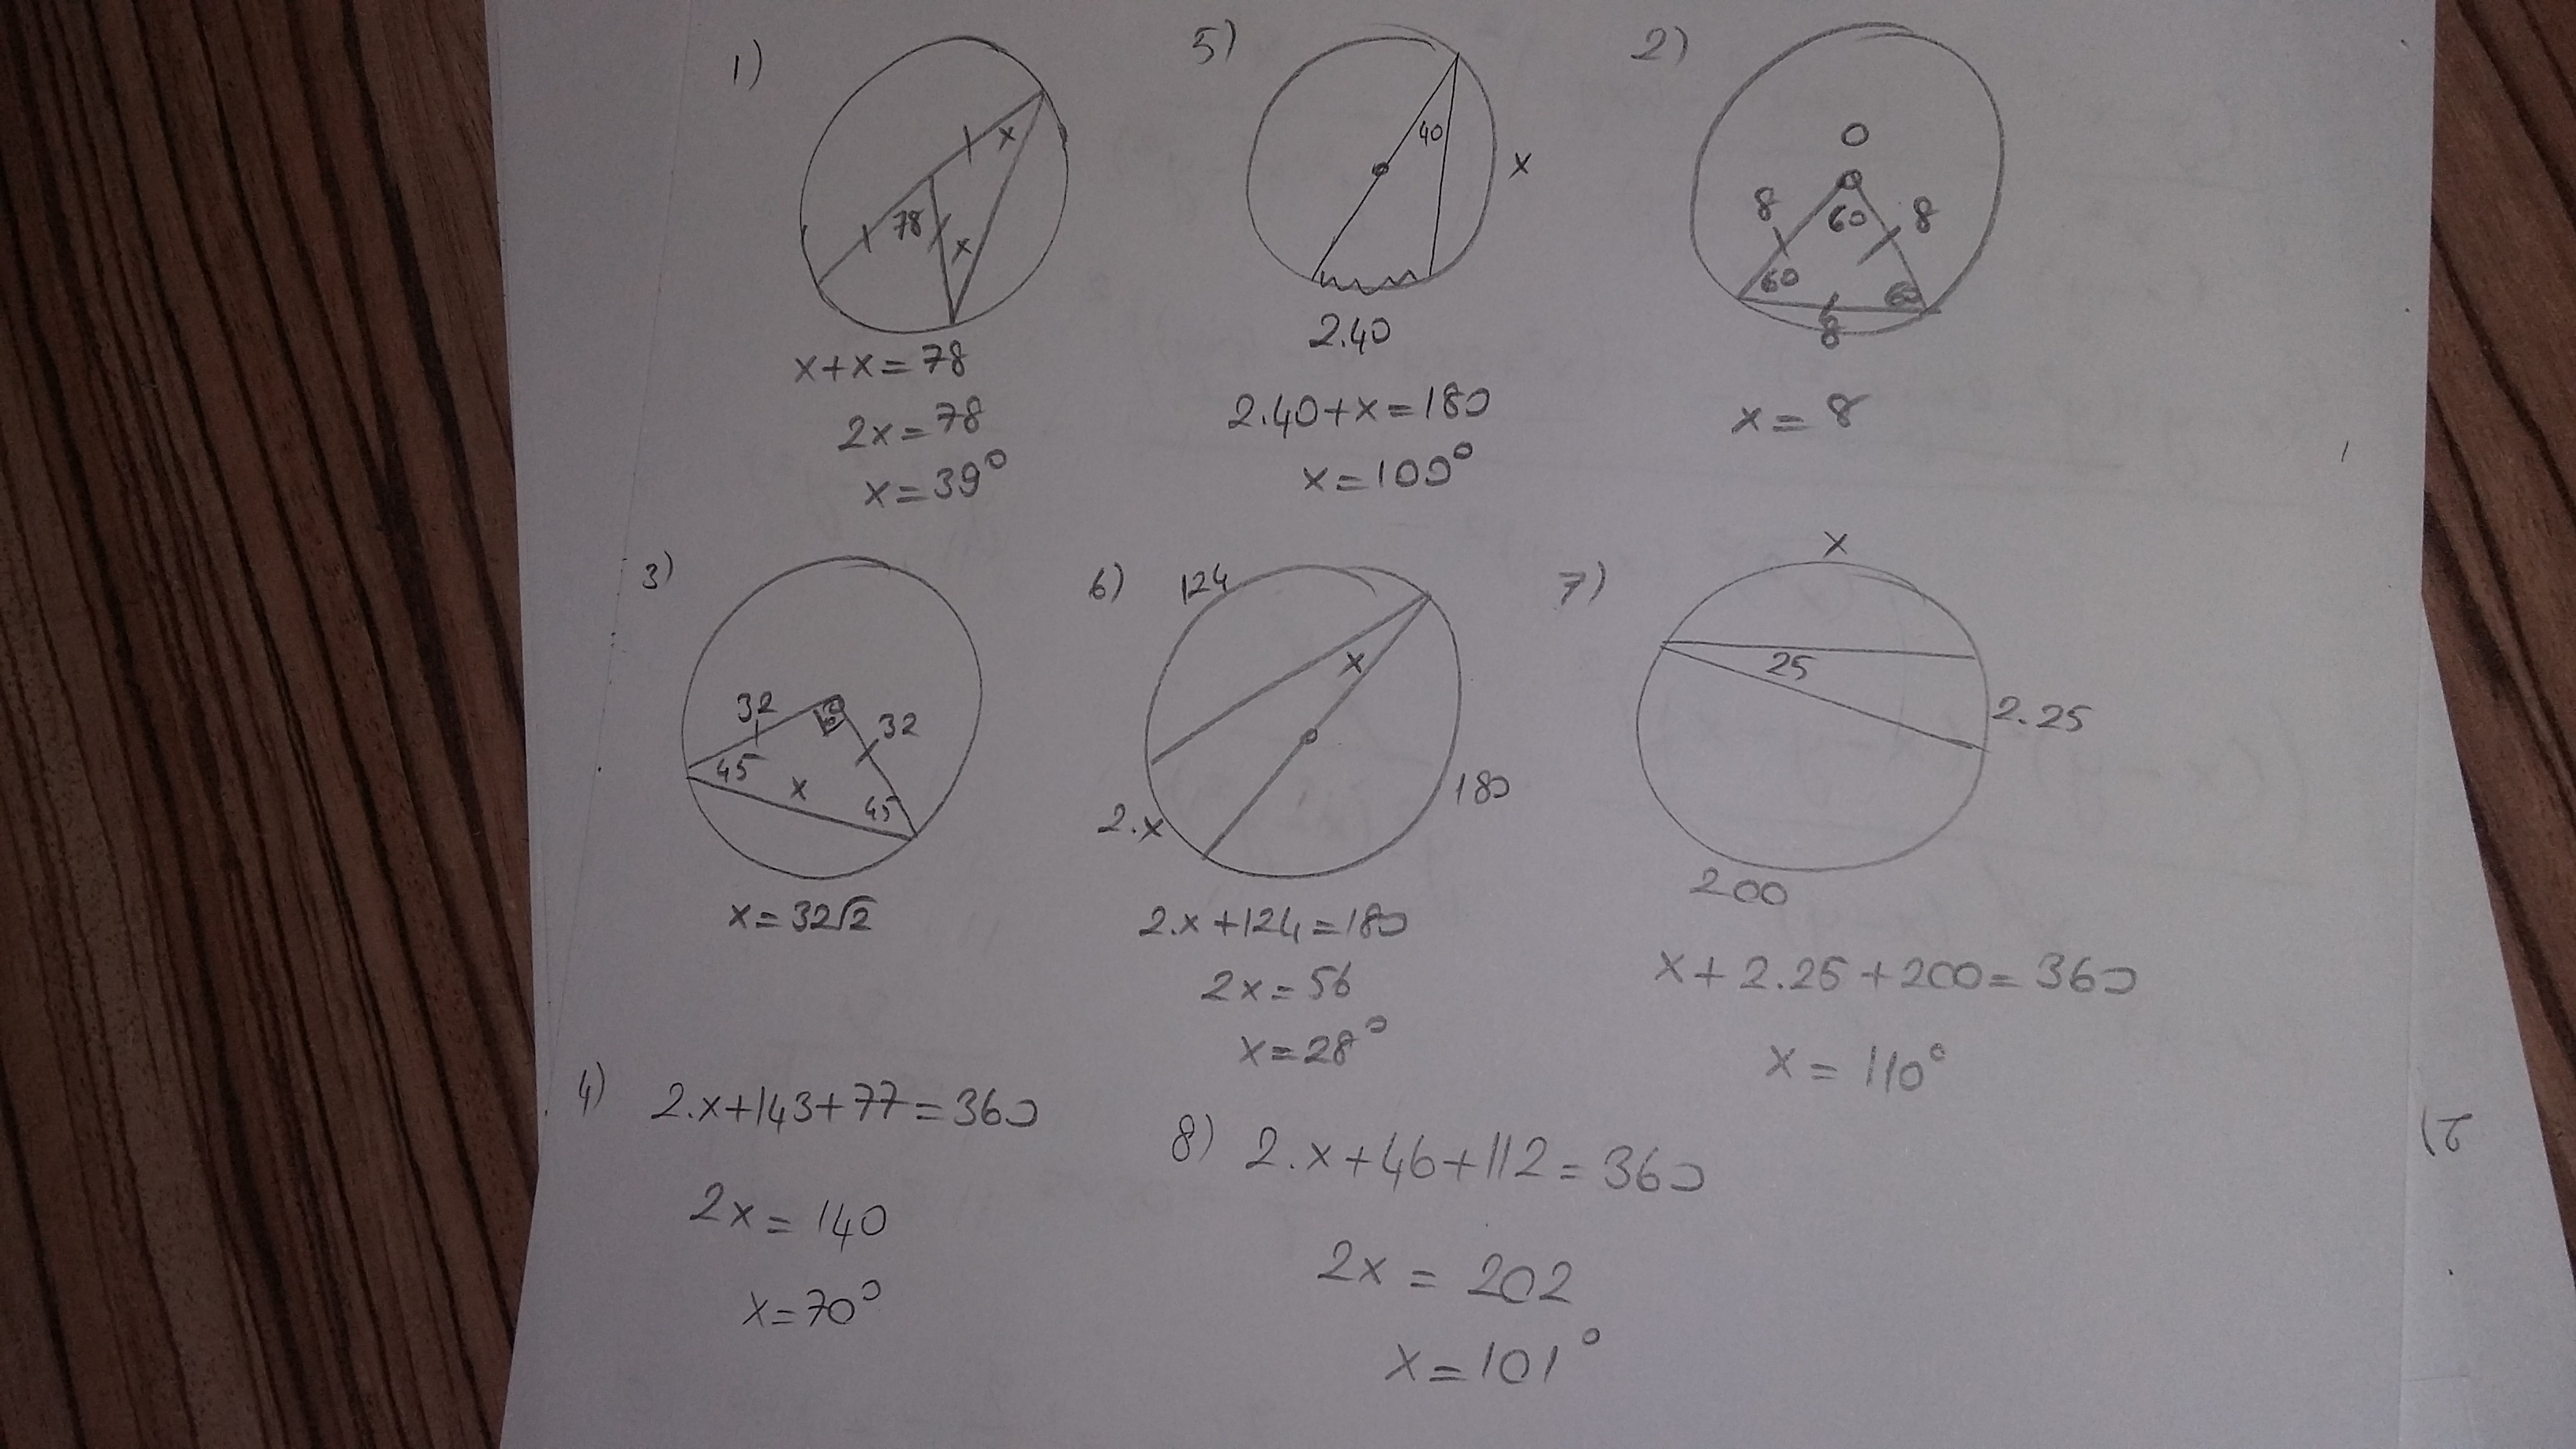 1)
x
78
x
x+x=78
2x=78
x=39°
5)
40
x
2.40
2.40+x=180
x=100°
2)
O
8
60
8
60
60
8
x=8
3)
32
32
45
x
45
x=32√2
6)
124
x
2.x
180
2.x+124=180
2x=56
x=28°
7)
x
25
2.25
200
x+2.25+200=360
x=110°
4) 2.x+143+77=360
2x=140
x=70°
8) 2.x+46+112=360
2x=202
x=101°